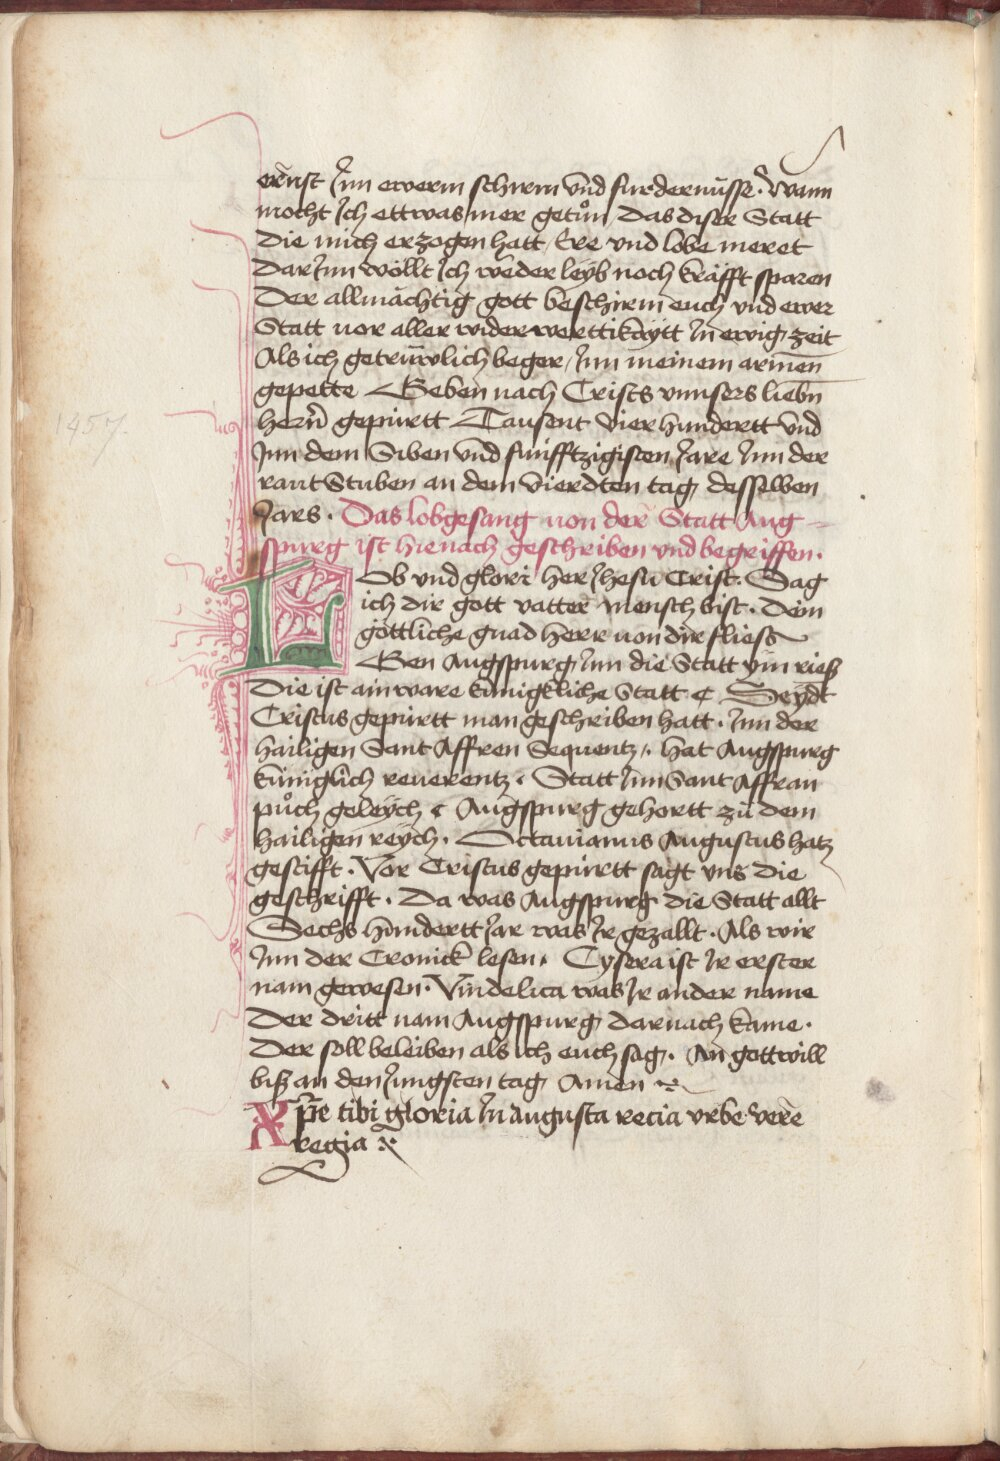 ernst Jnn ewerm schirm vnd furdernusse. Wann
mocht Jch ettwas mer getůn das diser Statt
die mich erzogen hatt / Ere vnd lobe meret
dar Jnn wöllt Jch weder leyb noch kräfft sparen
Der allmächtig gott beschirm euch vnd ewer
Statt vor aller widerwerttikäytt Jn ewig zeit
Als ich getrüwlich beger / Jnn meinem armen
gepette Geben nach Crists vnnsers liebn̄
hern̄ gepürtt Tausent vierhundertt vnd
1457.
Jnn dem Siben vnd fünfftzigisten Jare Jnn der
rautstuben an dem vierdten tag desselben
Jars . Das lobgesang von der Statt Aug-
spurg ist hienach geschriben vnd begriffen .
Lob vnd glori her Jhesu Crist . Sag
ich dir gott vatter mensch bist . dein
göttliche gnad herr von dir fliess
Gen Augspurg Jnn die Statt ym rieß
Die ist ain ware künigkliche Statt Seydt
Cristus gepürtt man geschriben hatt . Jnn der
hailigen Sant Affren Sequentz . hat Augspurg
küniglich reuerentz . Statt Jnn Sant Affran
půch geleych Augspurg gehortt zů dem
hailigen reych . Octauianus Augustus hatz
gestifft . Vor Cristus gepürtt sagt vns die
geschrifft . Da was Augspurg die Statt allt
Sechs hundertt Jar was Jr gezallt . Als wir
Jnn der Cronick lesen . Cysera ist Jr erster
nam gewesen . Vindelica was Jr ander name
Der dritt nam Augspurg darnach kame .
Der soll beleiben als ich euch sag . An gott will
biß an den Jungsten tag Amen
Xp̄e tibi gloria Jn augusta recia vrbe vere
regia